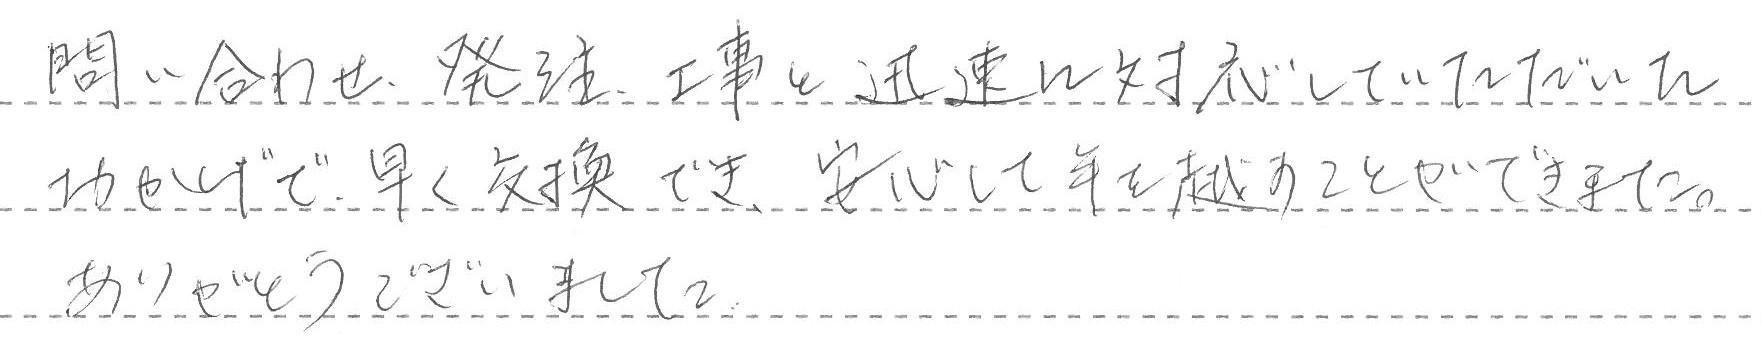 問い合わせ、発注、工事と迅速に対応していただいた
おかげで、早く交換でき、安心して年を越すことができました。
ありがとうございました。